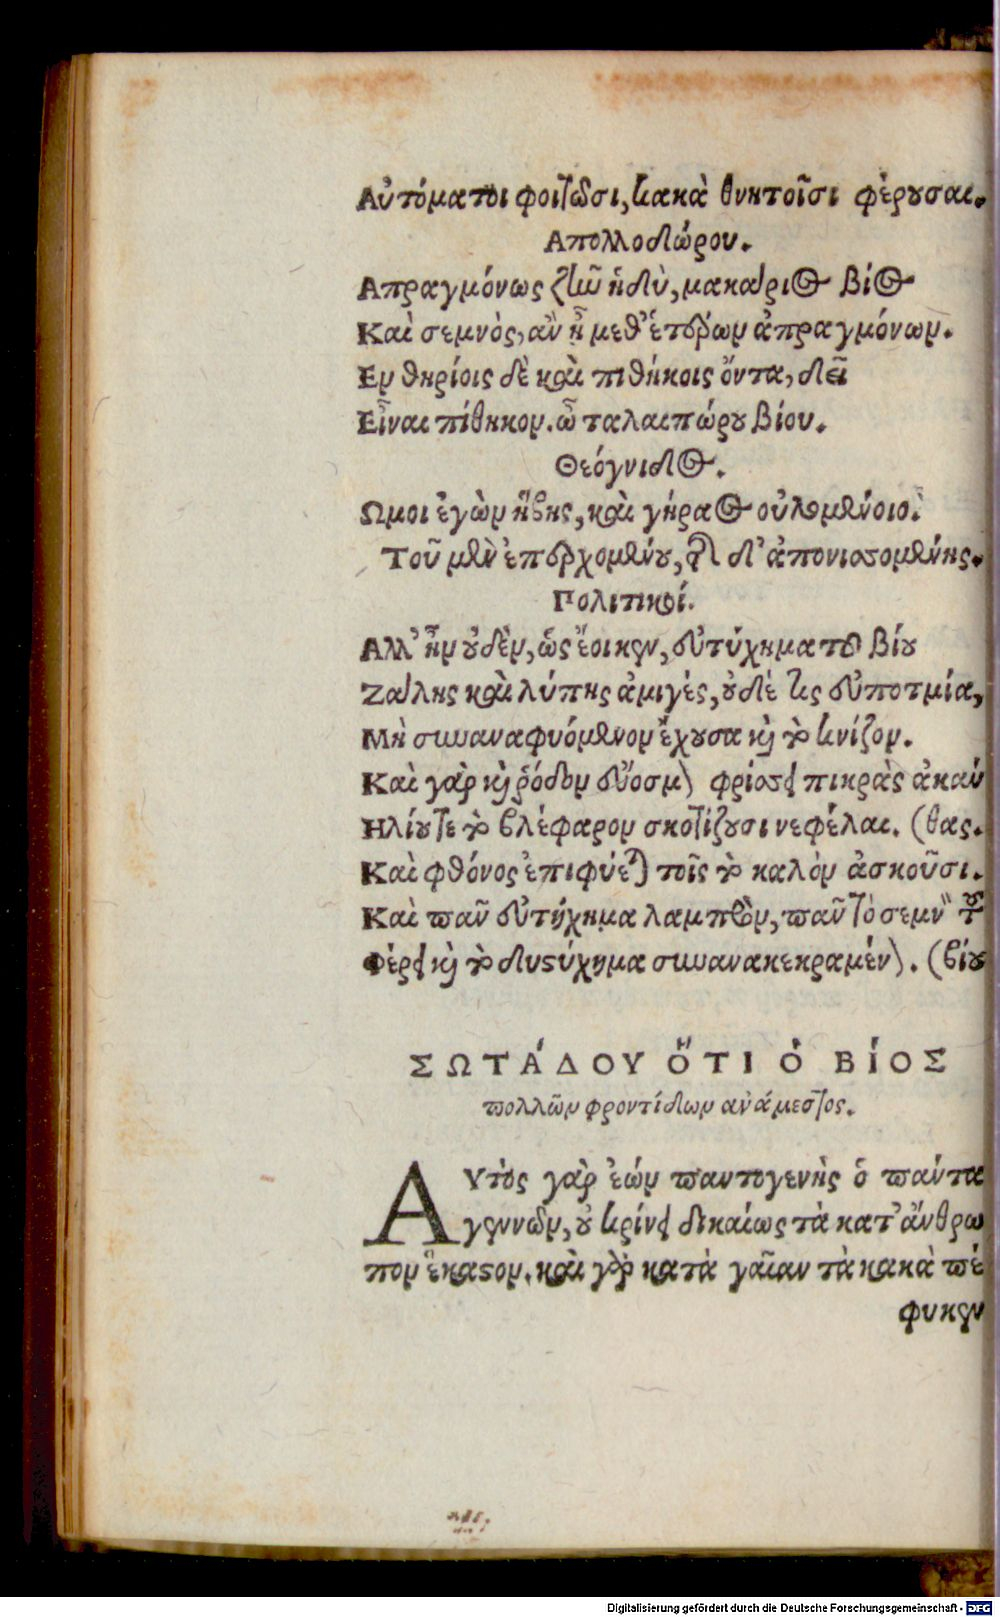 Αὐτόματοι φοιτῶσι, κακὰ θνητοῖσι φέρουσαι.
Απολλοδώρου.
Απραγμόνως ζῆν ἡδὺ, μακάριος βίος
Καὶ σεμνὸς, ἂν ᾖ μεθ' ἑτέρων ἀπραγμόνων.
Εν θηρίοις δὲ καὶ πιθήκοις ὄντα, δεῖ
Εἶναι πίθηκον. ὦ ταλαιπώρου βίου.
Θεόγνιδος.
Ωμοι ἐγὼν ἥβης, καὶ γήραος οὐλομένοιο.
Τοῦ μὲν ἐπερχομένου, τῆς δ' ἀπονισσομένης.
Πολιτικοί.
Αλλ' ἦν οὐδὲν, ὡς ἔοικεν, εὐτύχημα τοῦ βίου
Ζάλης καὶ λύπης ἀμιγές, οὐδέ τις εὐποτμία,
Μὴ συναναφυόμενον ἔχουσα καὶ τὸ κνίζον.
Καὶ γὰρ καὶ ῥόδον εὔοσμον φρίσσει πικρὰς ἀκάν
Ηλίου τε τὸ βλέφαρον σκοτίζουσι νεφέλαι. (θας.
Καὶ φθόνος ἐπιφύεται τοῖς τὸ καλὸν ἀσκοῦσι.
Καὶ πᾶν εὐτύχημα λαμπρὸν, πᾶν τὸ σεμνὸν τοῦ
Φέρει καὶ τὸ δυστύχημα συνανακεκραμένον. (βίου
ΣΩΤΆΔΟΥ ὍΤΙ Ὁ ΒΊΟΣ
πολλῶν φροντίδων ἀνάμεστος.
ΑΥτὸς γὰρ ἐὼν παντογενὴς ὁ πάντα
γεννῶν, οὐ κρίνει δικαίως τὰ κατ' ἄνθρω
πον ἕκαστον. καὶ γὰρ κατὰ γαῖαν τὰ κακὰ πέ
φυκεν